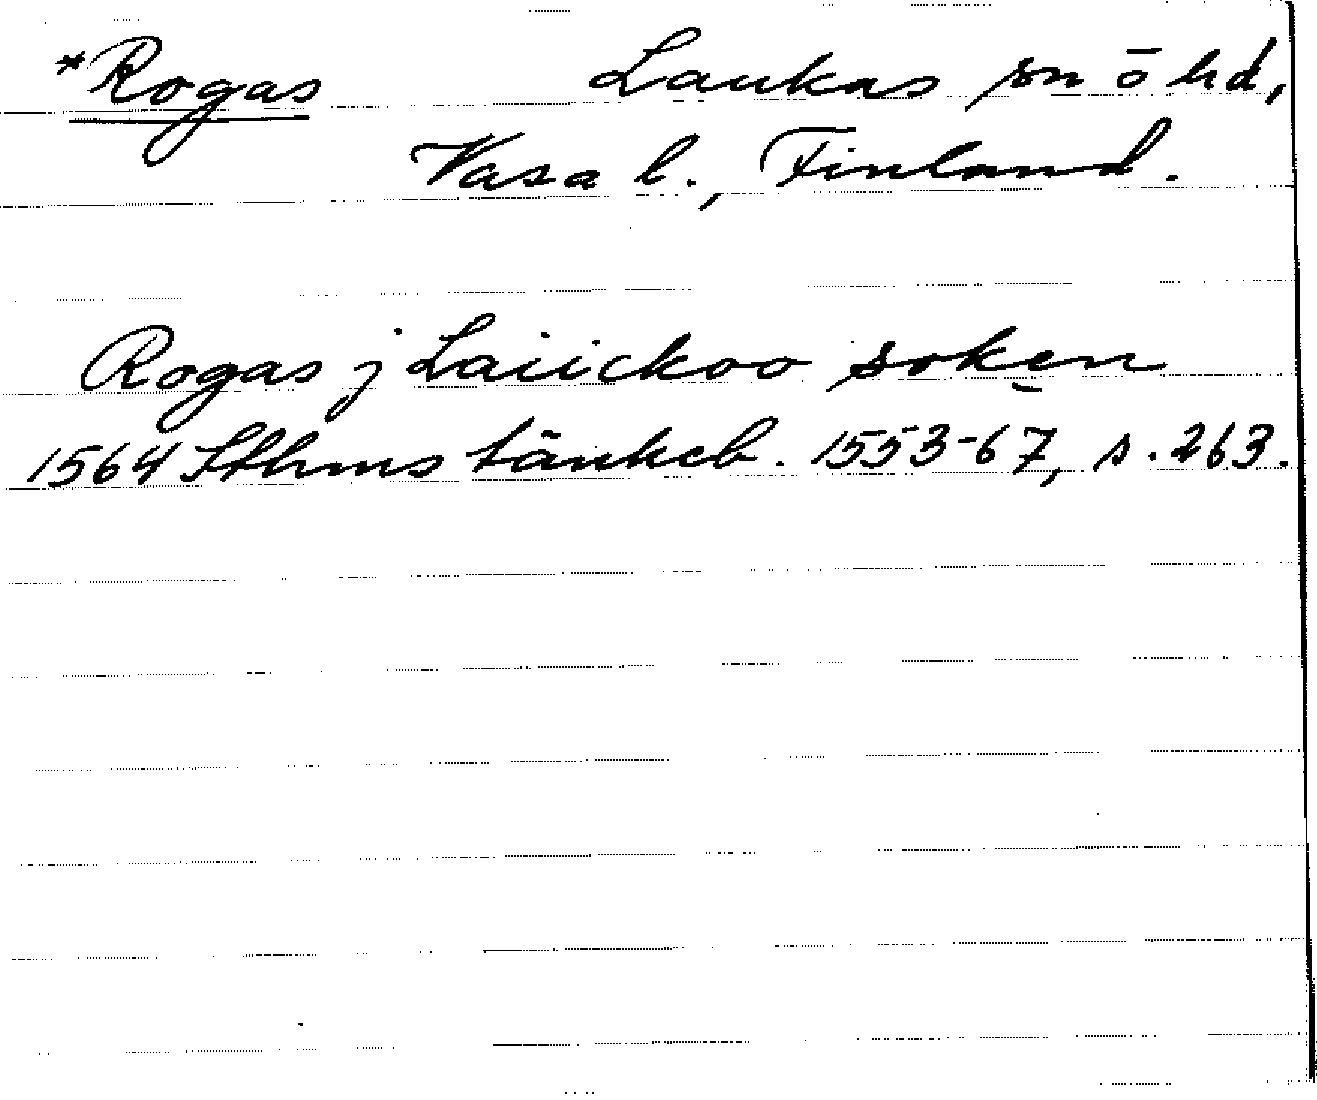 *Rogas Laukas sn ō hd,
Vasa l., Finland.
Rogas j Laiickoo soken
1564 Sthms tänkeb. 1553-67, s. 263.